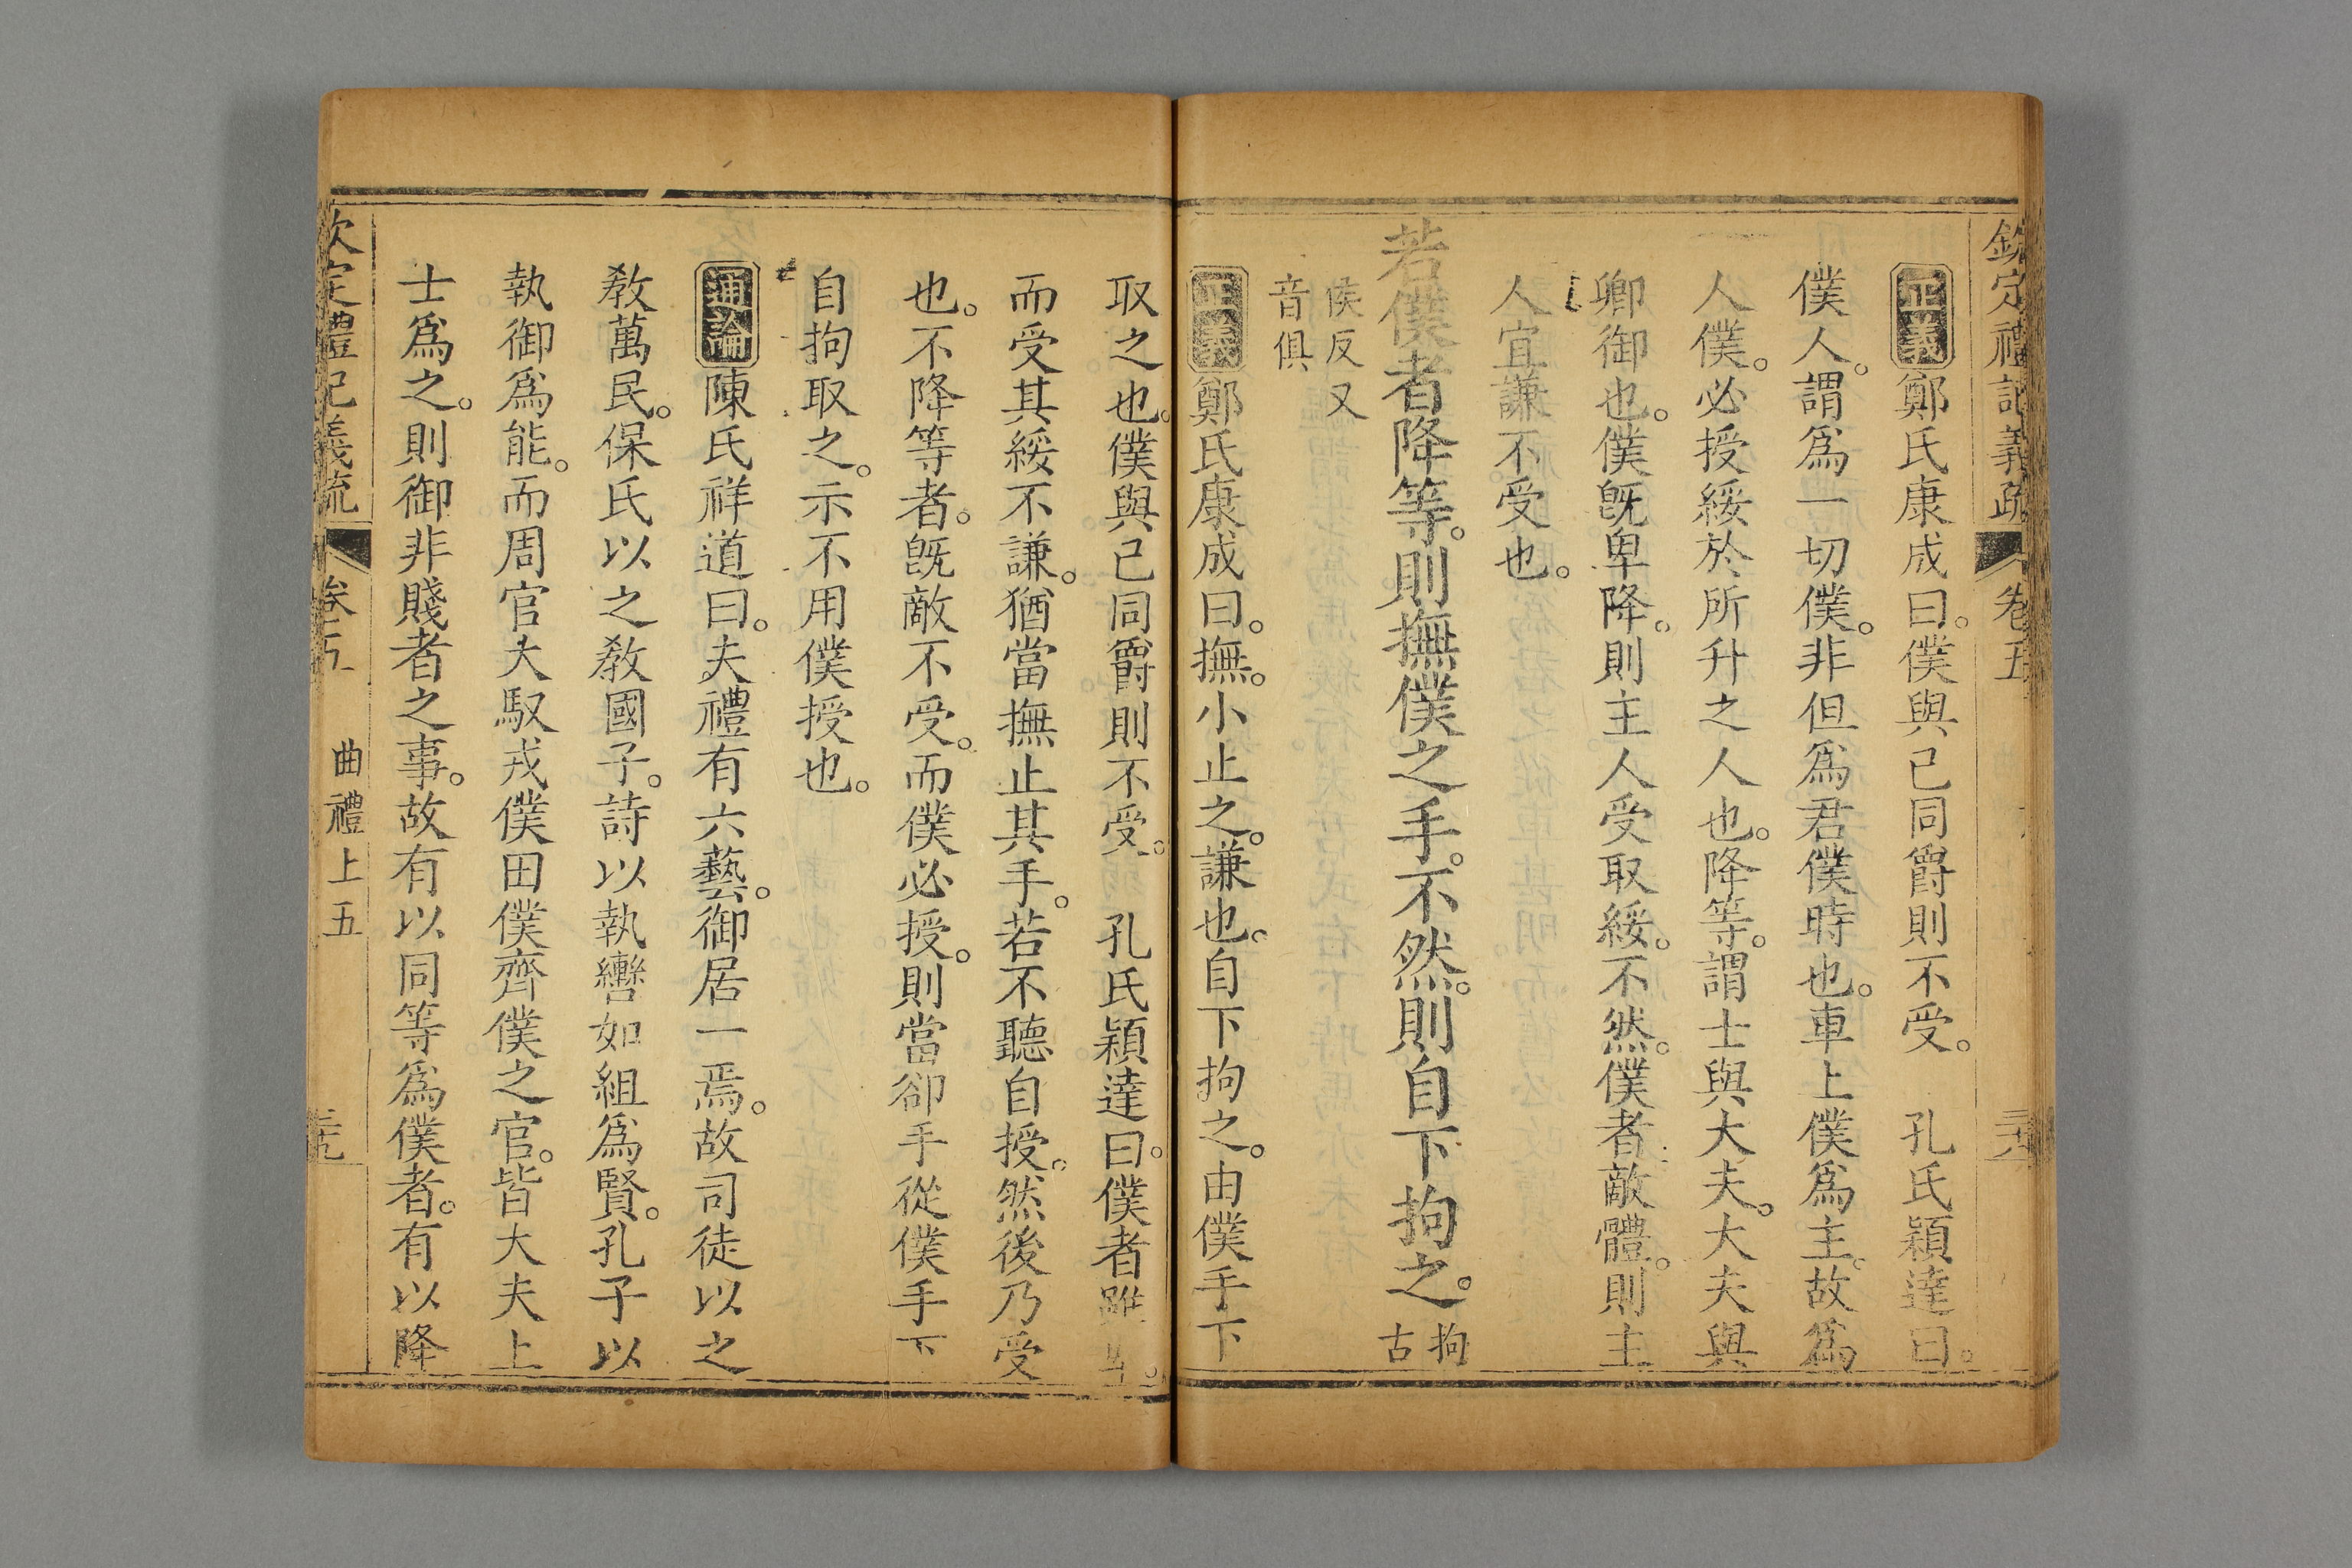 欽定禮記義疏 卷五 三十八
正義鄭氏康成曰。僕與己同爵則不受。 孔氏穎達曰。
僕人。謂爲一切僕。非但爲君僕時也。車上僕爲主。故爲
人僕。必授綏於所升之人也。降等。謂士與大夫。大夫與
卿御也。僕旣卑降。則主人受取綏。不然。僕者敵體。則主
人宜謙不受也。
若僕者降等。則撫僕之手。不然。則自下拘之。拘古
侯反又
音俱
正義鄭氏康成曰。撫。小止之。謙也。自下拘之。由僕手下
取之也。僕與己同爵則不受。 孔氏穎達曰。僕者雖卑。
而受其綏不謙。猶當撫止其手。若不聽自授。然後乃受
也。不降等者。旣敵不受。而僕必授。則當卻手從僕手下
自拘取之。示不用僕授也。
通論陳氏祥道曰。夫禮有六藝。御居一焉。故司徒以之
敎萬民。保氏以之敎國子。詩以執轡如組爲賢。孔子以
執御爲能。而周官大馭戎僕田僕齊僕之官。皆大夫上
士爲之。則御非賤者之事。故有以同等爲僕者。有以降
欽定禮記義疏 卷五 曲禮上五 三十九